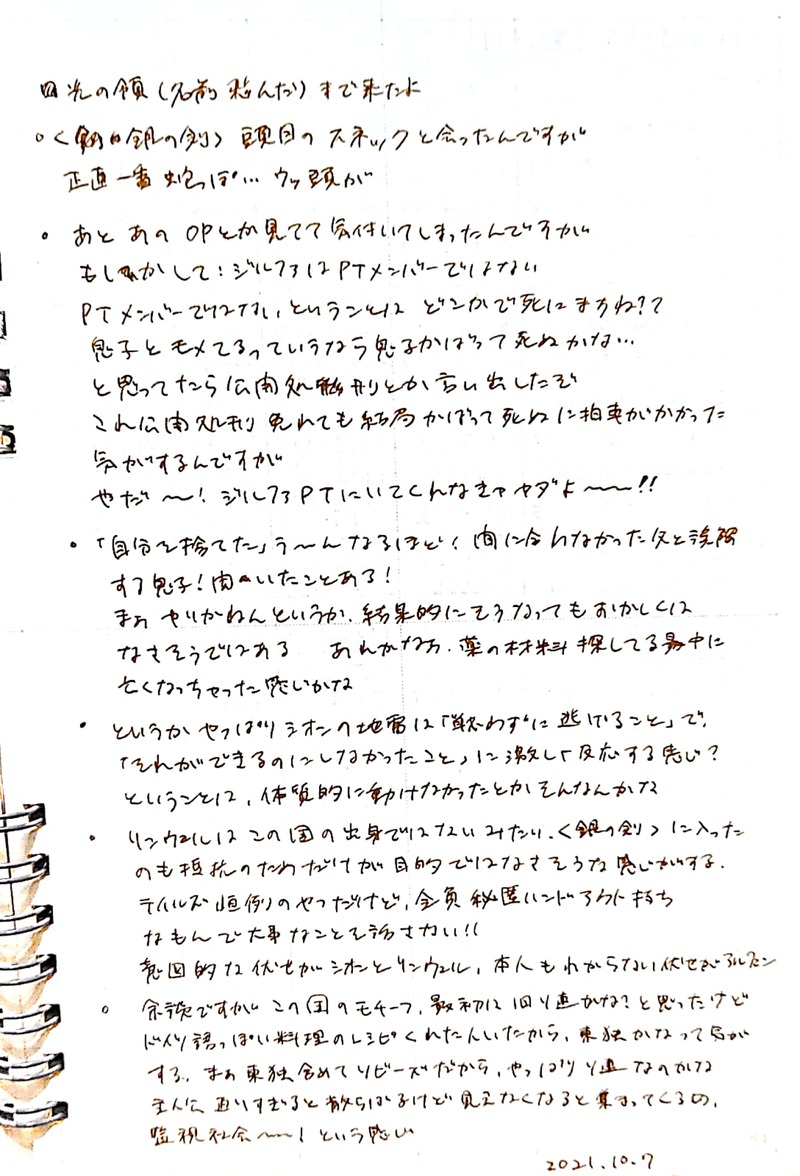 光の領(名前 悩んだ)まで来たよ
○〈銀の剣〉頭目のスネックと会ったんですが
正直一番 蛇っぽ… ウッ頭が
・あと あの OPとか見てて気付いてしまったんですが
もしかして:ジルファはPTメンバーではない
PTメンバーではない、ということは どこかで死にますね??
息子とモメてるっていうなら息子かばって死ぬかな…
と思ってたら公開処刑とか言い出したぞ
これ公開処刑 免れても結局かばって死ぬに拍車がかかった
気がするんですが
やだ〜! ジルファPTにいてくんなきゃヤダよ〜〜!!
・「自分を捨てた」う〜んなるほど、間に合わなかった父と誤解
する息子!聞いたことある!
まあ やりかねんというか、結果的にそうなってもおかしくは
なさそうではある あれかなあ、薬の材料 探してる最中に
亡くなっちゃった感じかな
・というか やっぱりシオンの地雷は「戦わずに逃げること」で、
「それができるのにしなかったこと」に激しく反応する感じ?
ということは、体質的に動けなかったとかそんなんかな
・リンウェルはこの国の出身ではないみたい、〈銀の剣〉に入った
のも抵抗のためだけが目的ではなさそうな感じがする、
テイルズ恒例のやつだけど、全員 秘匿ハンドアウト持ち
なもんで大事なことを話さない!!
意図的な伏せがシオンとリンウェル、本人もわからない伏せがアルフェン
○余談ですが この国のモチーフ、最初は旧ソ連かな?と思ったけど
ドイツ語っぽい料理のレシピくれた人いたから、東独かなって気が
する、まあ東独含めてソビーズだから、やっぱりソ連なのかな
主人公 近すぎると散らばるけど見えなくなると集まってくるの、
監視社会〜〜! という感じ
2021.10.7